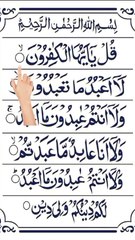 بِسْمِ اللّٰهِ الرَّحْمٰنِ الرَّحِيْمِ
قُلْ يٰۤاَيُّهَا الْكٰفِرُوْنَ
لَاۤ اَعْبُدُ مَا تَعْبُدُوْنَ
وَلَاۤ اَنْتُمْ عٰبِدُوْنَ مَاۤ اَعْبُدُ
وَلَاۤ اَنَا عَابِدٌ مَّا عَبَدْتُّمْ
وَلَاۤ اَنْتُمْ عٰبِدُوْنَ مَاۤ اَعْبُدُ
لَكُمْ دِيْنُكُمْ وَلِىَ دِيْنِ